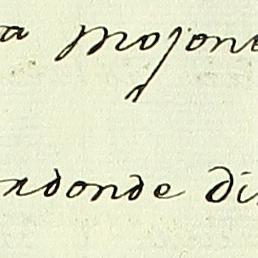 a mojone
ndonde di